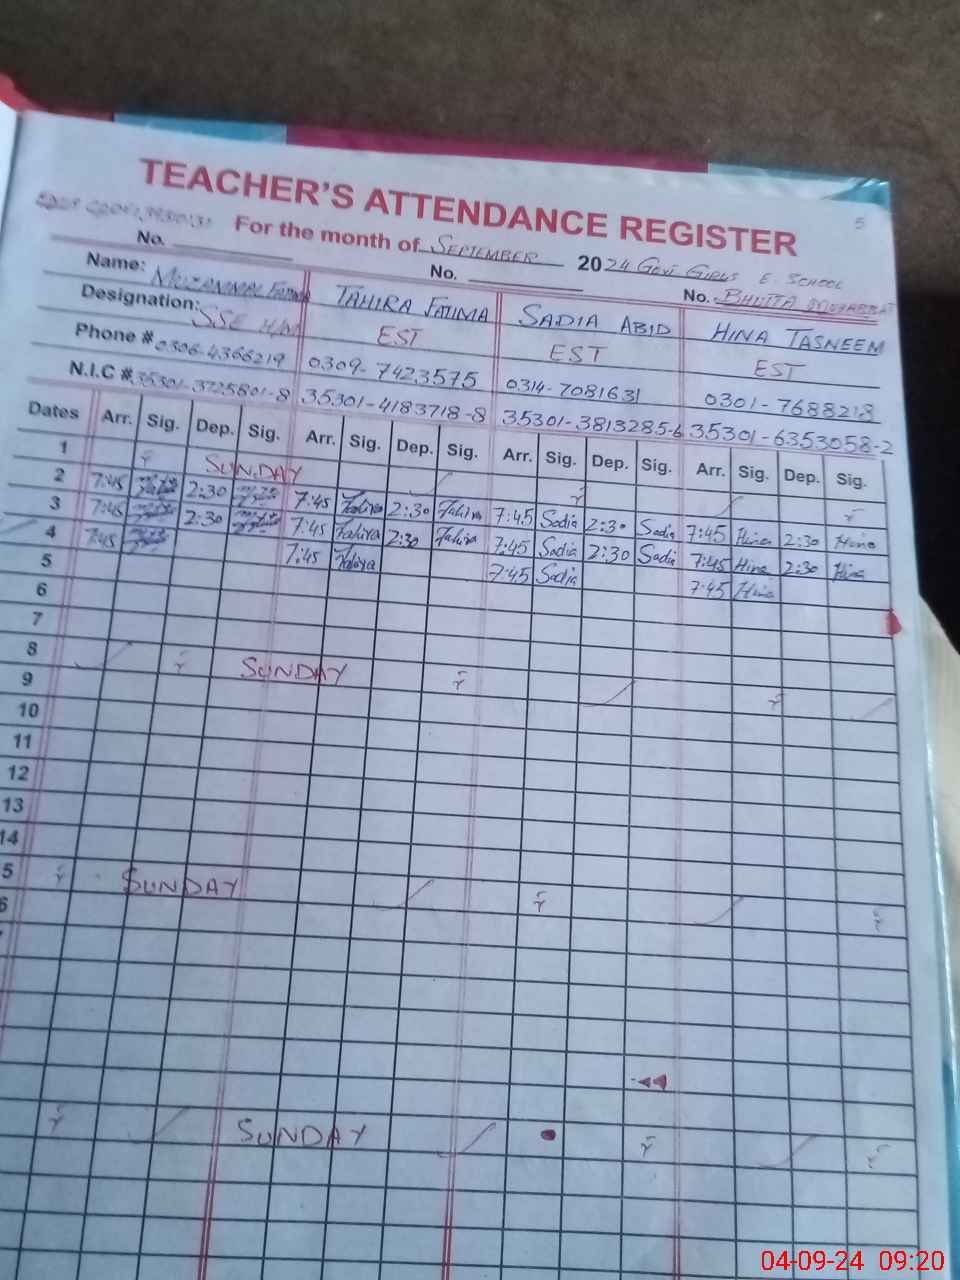 TEACHER'S ATTENDANCE REGISTER
5
For the month of SEPTEMBER 2024 GOVT GIRLS E. SCHOOL
No. No. No. BHUTTA MUHABBAT
Name: MUZAMMAL FATIMA TAHIRA FATIMA SADIA ABID HINA TASNEEM
Designation: SSE H/M EST EST EST
Phone # 0306-4366219 0309-7423575 0314-7081631 0301-7688218
N.I.C # 35301-3725801-8 35301-4183718-8 35301-3813285-6 35301-6353058-2
Dates Arr. Sig. Dep. Sig. Arr. Sig. Dep. Sig. Arr. Sig. Dep. Sig. Arr. Sig. Dep. Sig.
1 SUNDAY
2 7:45 2:30 7:45 Tahira 2:30 Tahira 7:45 Sadia 2:30 Sadia 7:45 Hina 2:30 Hina
3 7:45 2:30 7:45 Tahira 2:30 Tahira 7:45 Sadia 2:30 Sadia 7:45 Hina 2:30 Hina
4 7:45 7:45 Tahira 7:45 Sadia 7:45 Hina
5
6
7
8 SUNDAY
9
10
11
12
13
14
5 SUNDAY
6
SUNDAY
04-09-24 09:20